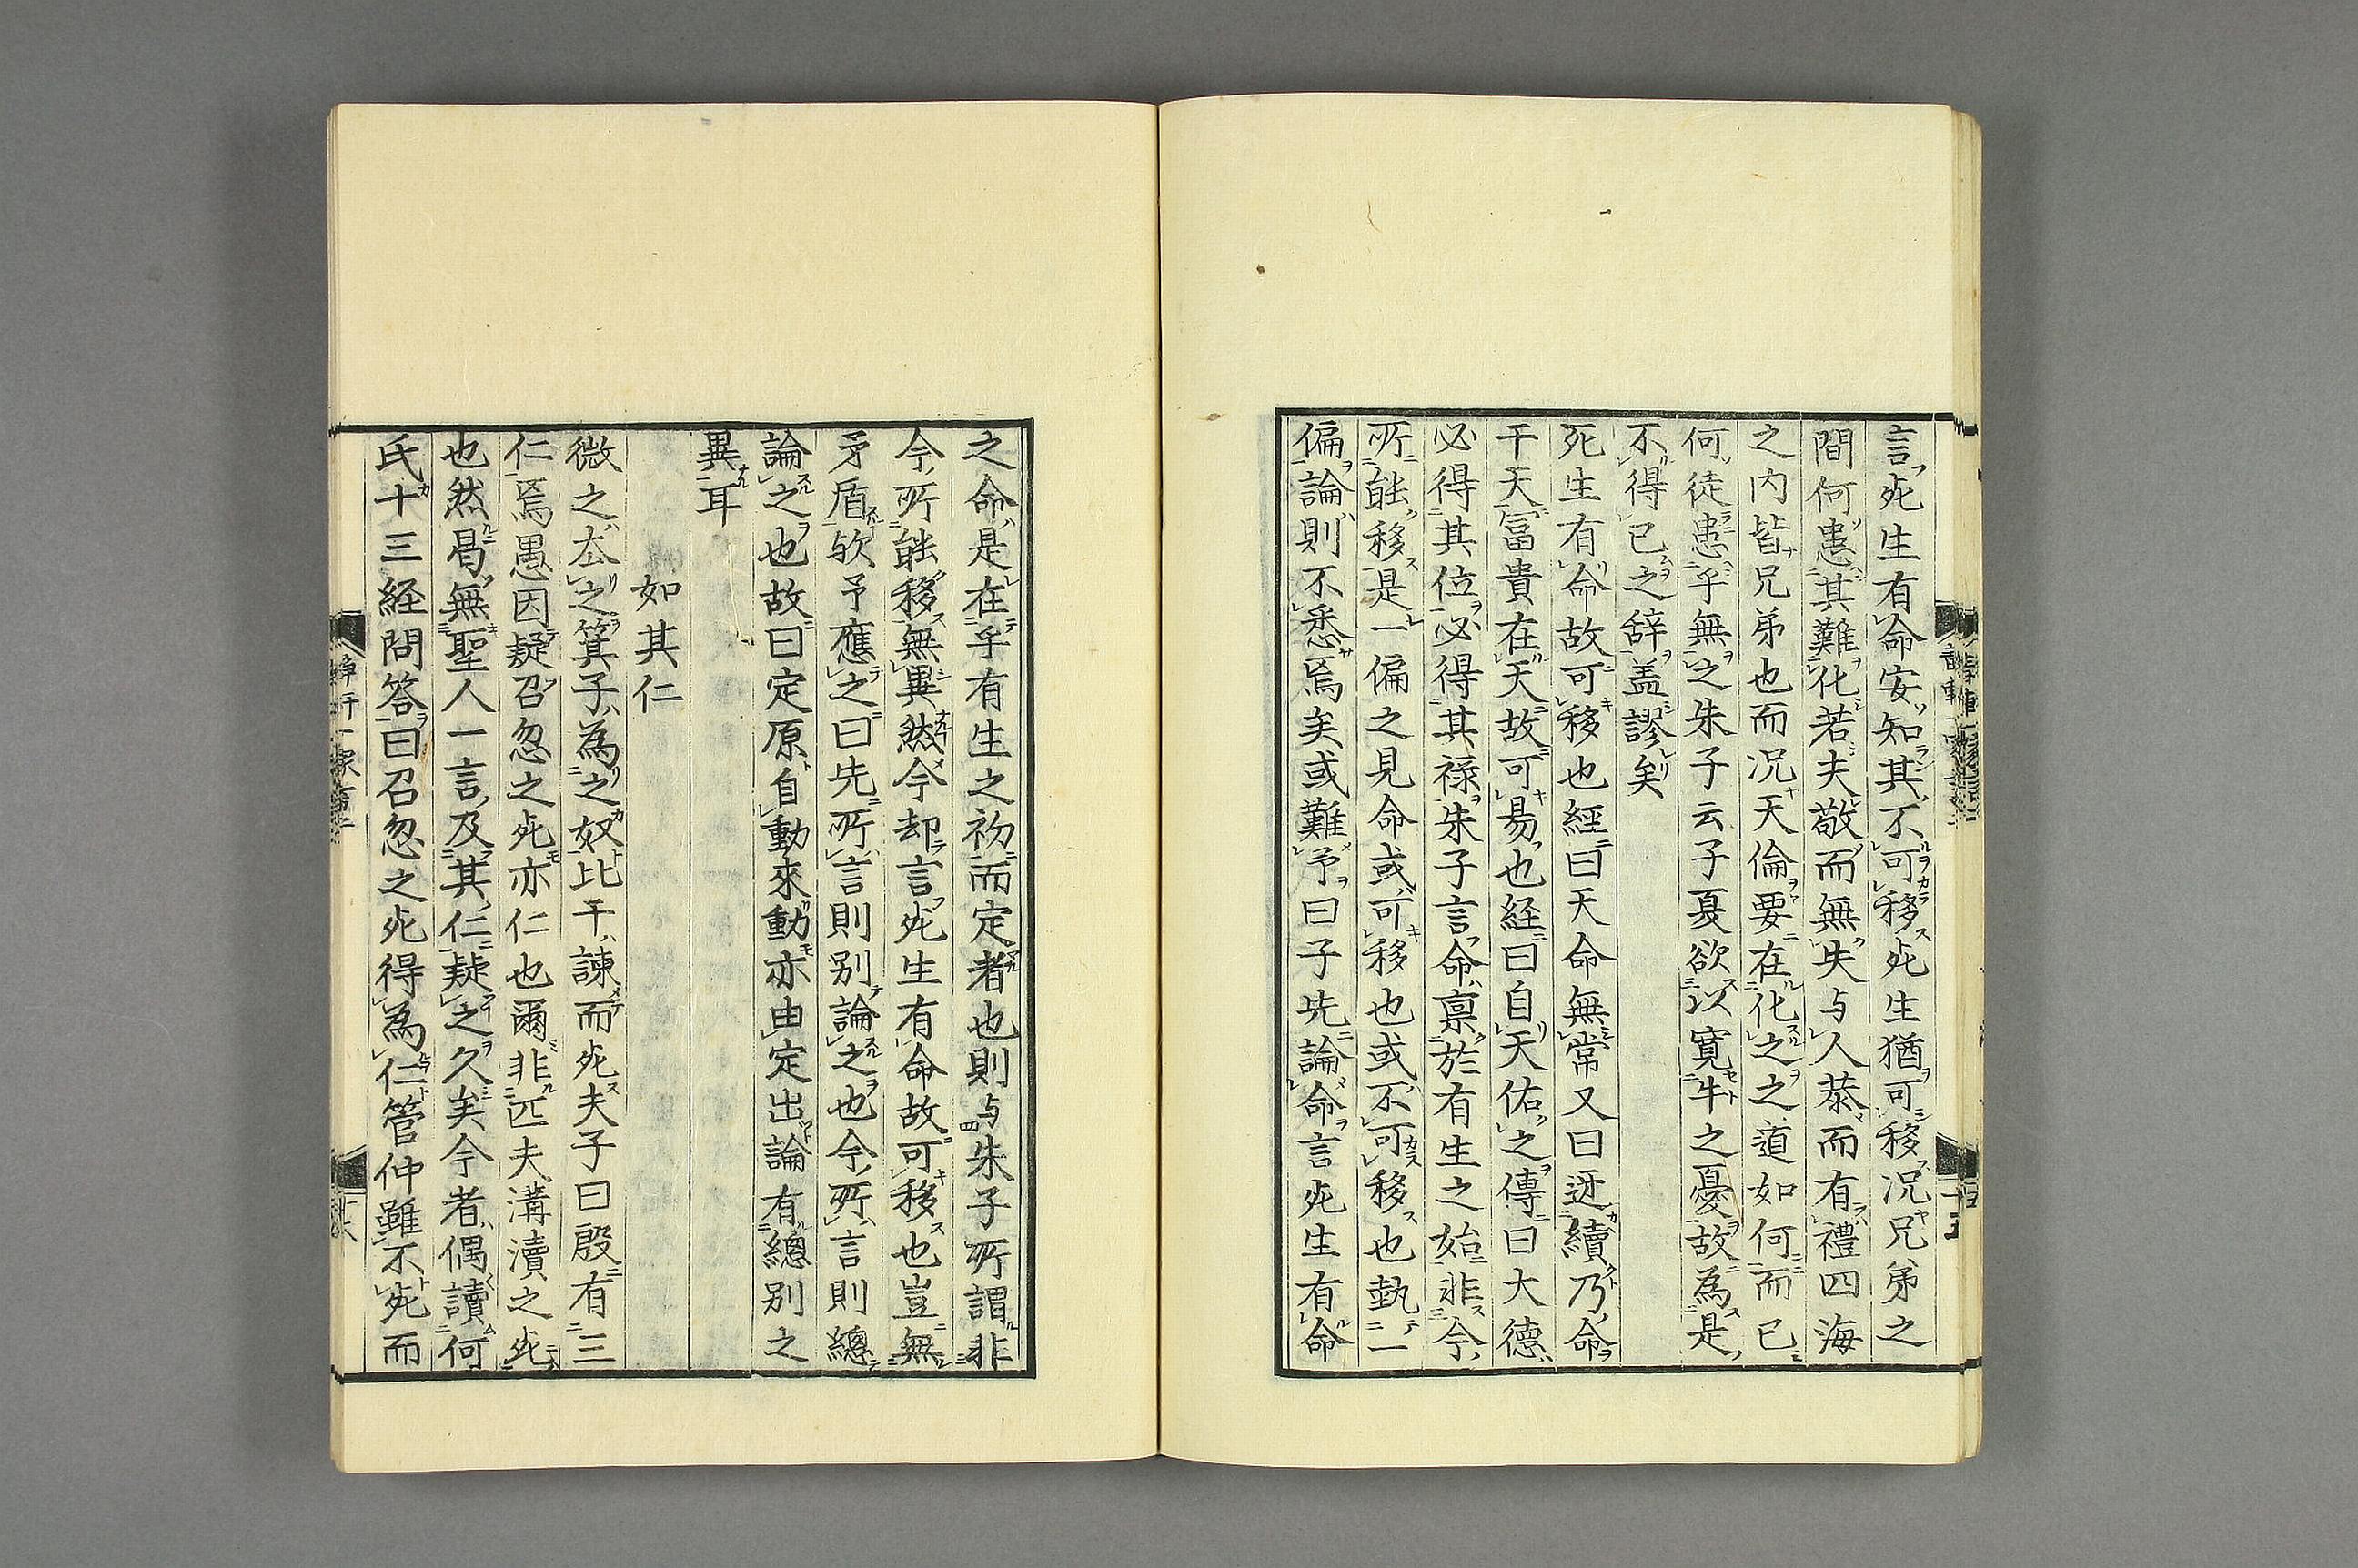 言死生有命安知其不可移死生猶可移况兄弟之
間何患其難化若夫敬而無失与人恭而有禮四海
之内皆兄弟也而况天倫要在化之之道如何而已
何徒患乎無之朱子云子夏欲以寛牛之憂故為是
不得已之辞盖謬矣
死生有命故可移也經曰天命無常又曰迓續乃命
于天冨貴在天故可易也経曰自天佑之傳曰大德
必得其位必得其禄朱子言命禀於有生之始非今
所能移是一偏之見命或可移也或不可移也執一
偏論則不悉焉矣或難予曰子先論命言死生有命
之命是在乎有生之初而定者也則与朱子所謂非
今所能移無異然今却言死生有命故可移也豈無
矛盾欤予應之曰先所言則别論之也今所言則總
論之也故曰定原自動來動亦由定出論有總别之
異耳
如其仁
微之厺之箕子為之奴比干諫而死夫子曰殷有三
仁焉愚因疑召忽之死亦仁也爾非匹夫溝瀆之死
也然曷無聖人一言及其仁疑之久矣今者偶讀何
氏十三経問答曰召忽之死得為仁管仲雖不死而